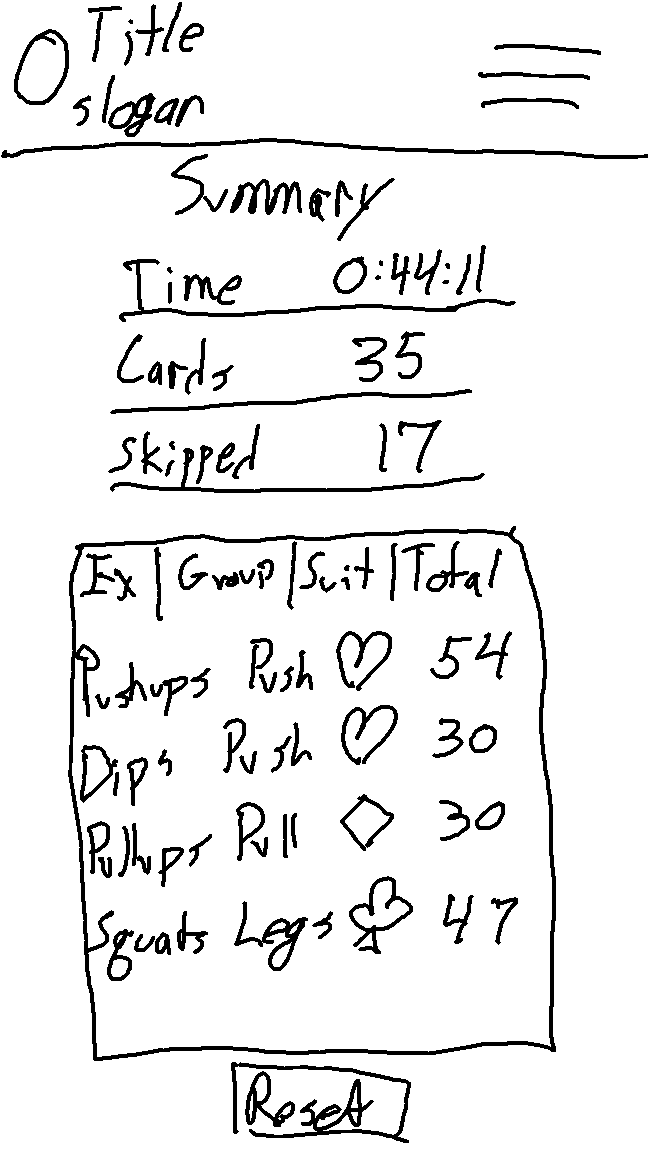 Title
slogan
Summary
Time 0:44:11
Cards 35
Skipped 17
Ex | Group | Suit | Total
Pushups Push ♡ 54
Dips Push ♡ 30
Pullups Pull ♢ 30
Squats Legs ♧ 47
Reset